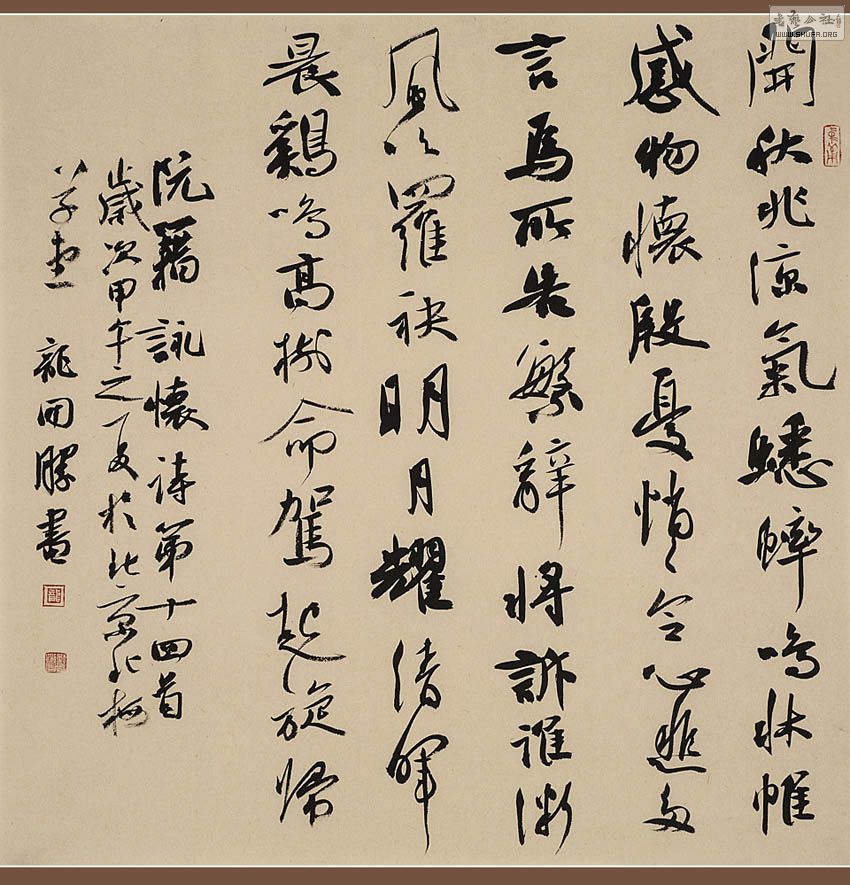 書藝公社
WWW.SHUFA.ORG
開秋兆涼氣蟋蟀鳴牀帷
感物懷殷憂悄〻令心悲多
言焉所告繁辭將訴誰微
風吹羅袂明月耀清暉
晨鷄鳴高樹命駕起旋歸
阮籍詠懷詩第十四首
歲次甲午之夏於北京北
草堂 龍開勝書